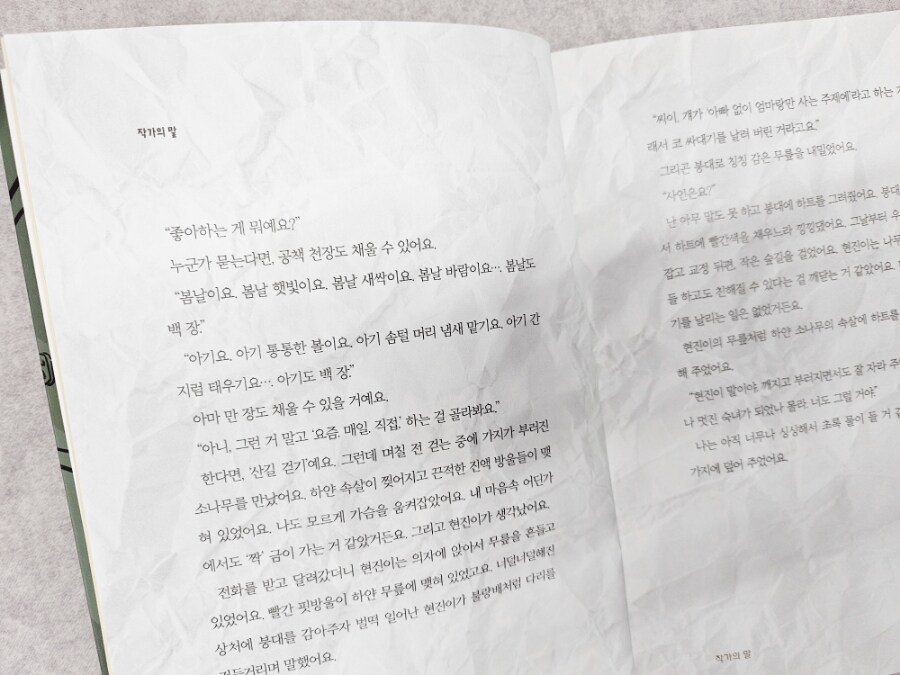 작가의 말
“좋아하는 게 뭐예요?”
누군가 묻는다면, 공책 천장도 채울 수 있어요.
“봄날이요. 봄날 햇빛이요. 봄날 새싹이요. 봄날 바람이요…. 봄날도
백 장.”
“아기요. 아기 통통한 볼이요. 아기 솜털 머리 냄새 맡기요. 아기 간
지럼 태우기요…. 아기도 백 장.”
아마 만 장도 채울 수 있을 거예요.
“아니, 그런 거 말고 ‘요즘, 매일, 직접,’ 하는 걸 골라봐요.”
한다면, ‘산길 걷기’예요. 그런데 며칠 전 걷는 중에 가지가 부러진
소나무를 만났어요. 하얀 속살이 찢어지고 끈적한 진액 방울들이 맺
혀 있었어요. 나도 모르게 가슴을 움켜잡았어요. 내 마음속 어딘가
에서도 ‘짝’ 금이 가는 거 같았거든요. 그리고 현진이가 생각났어요.
전화를 받고 달려갔더니 현진이는 의자에 앉아서 무릎을 흔들고
있었어요. 빨간 핏방울이 하얀 무릎에 맺혀 있었고요. 너덜너덜해진
상처에 붕대를 감아주자 벌떡 일어난 현진이가 불량배처럼 다리를
건들거리며 말했어요.
“씨이, 걔가 ‘아빠 없이 엄마랑만 사는 주제에’라고 하는
래서 코 싸대기를 날려 버린 거라고요.”
그리곤 붕대로 칭칭 감은 무릎을 내밀었어요.
“사인은요?”
난 아무 말도 못 하고 붕대에 하트를 그려줬어요. 붕대
서 하트에 빨간색을 채우느라 낑낑댔어요. 그날부터 우
잡고 교정 뒤편, 작은 숲길을 걸었어요. 현진이는 나무
들 하고도 친해질 수 있다는 걸 깨닫는 거 같았어요.
기를 날리는 일은 없었거든요.
현진이의 무릎처럼 하얀 소나무의 속살에 하트를
해 주었어요.
“현진이 말이야. 깨지고 부러지면서도 잘 자라 주
나 멋진 숙녀가 되었나 몰라. 너도 그럴 거야.”
나는 아직 너무나 싱싱해서 초록 물이 들 거 같
가지에 덮어 주었어요.
작가의 말